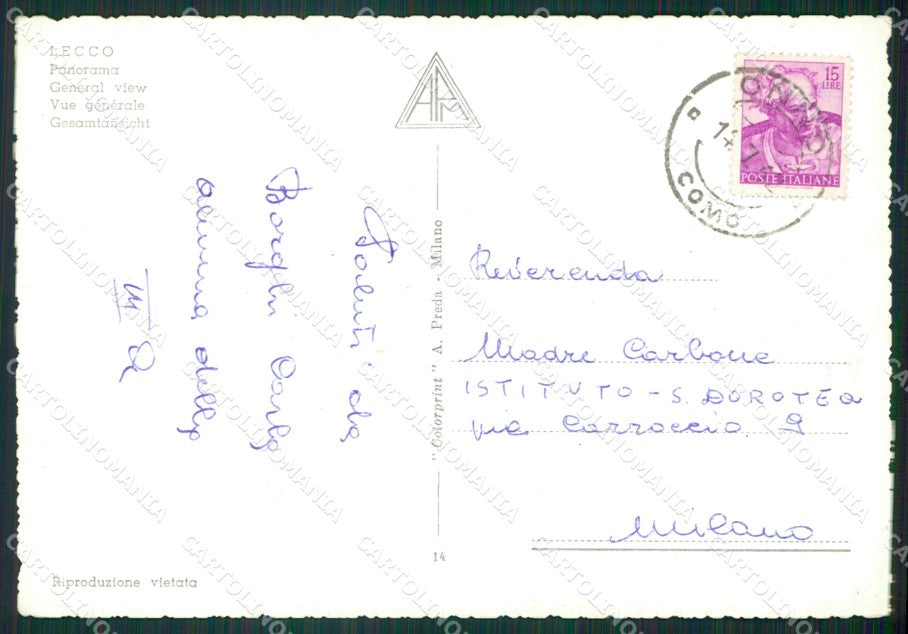 LECCO
Panorama
General view
Vue générale
Gesamtansicht
15
LIRE
POSTE ITALIANE
COMO
Saluti da
Borghi Carla
alunna della
III Q
"Colorprint" A. Preda - Milano
Reverenda
Madre Carbone
ISTITUTO - S. DOROTEA
via Carroccio 9
Milano
14
Riproduzione vietata
CARTOLINOMANIA